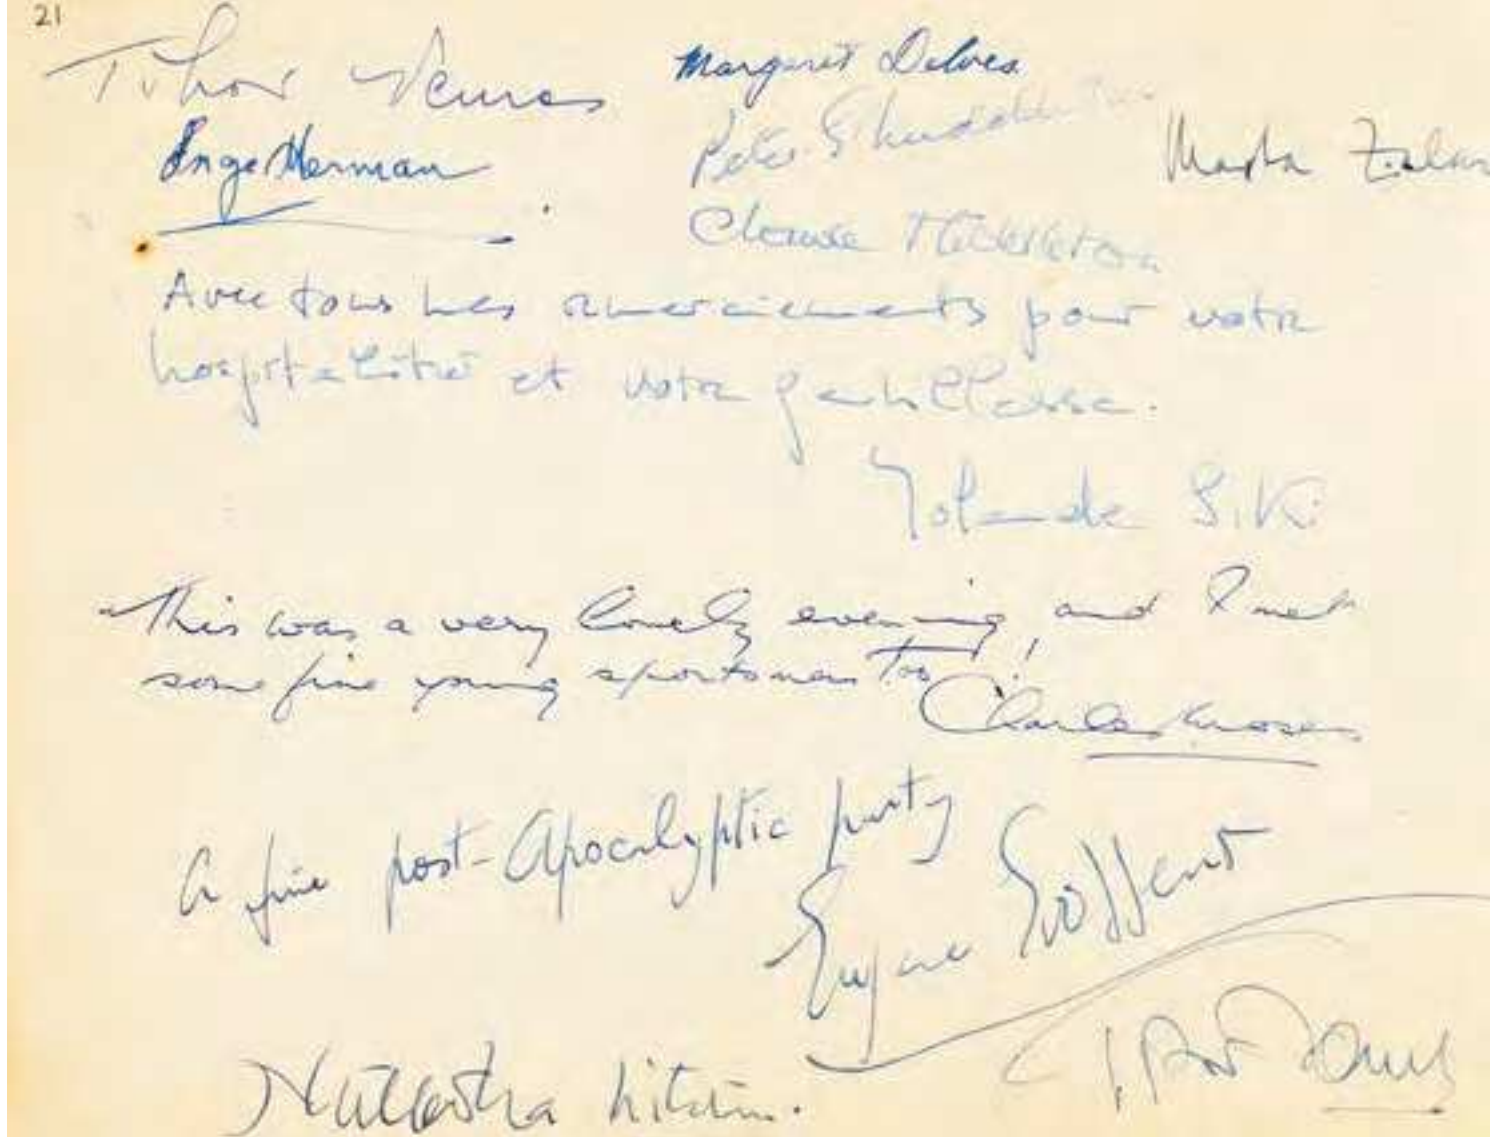 21
Margaret Delves
Inge Herman
Peter
Marta
Avec tous mes remerciements pour votre
hospitalité et votre gentillesse.
Yolande S.K.
This was a very lovely evening, and I met
some fine young sportsmen too!
Charles Moses
A fine post-Apocalyptic party
Eugene Goossens
Natasha